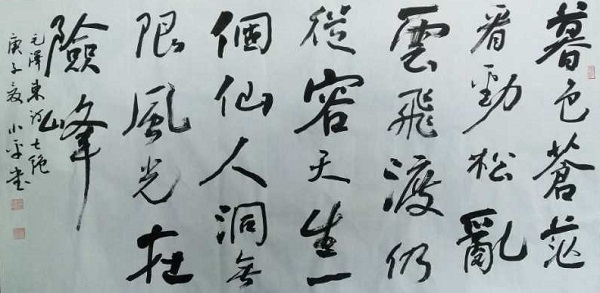 暮色蒼茫
看勁松亂
雲飛渡仍
從容天生一
個仙人洞無
限風光在
險峰
毛澤東詩七絕
庚子夏小平書